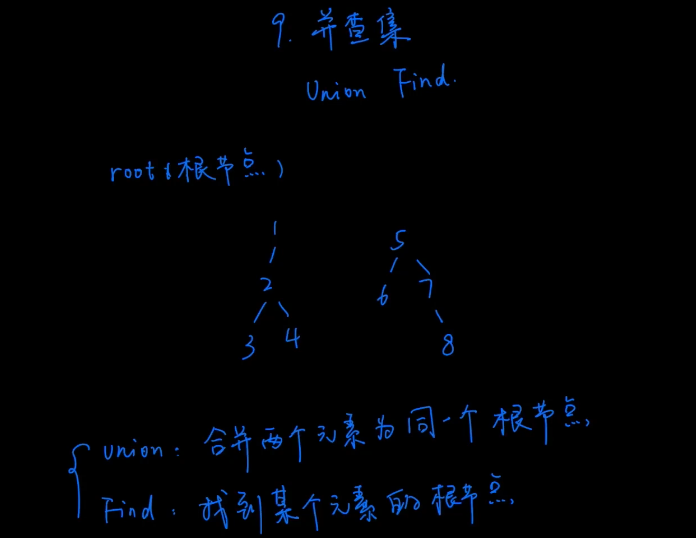 9. 并查集
Union Find.
root (根节点)
1
5
2
6 7
3 4
8
union: 合并两个元素为同一个根节点.
Find: 找到某个元素的根节点.